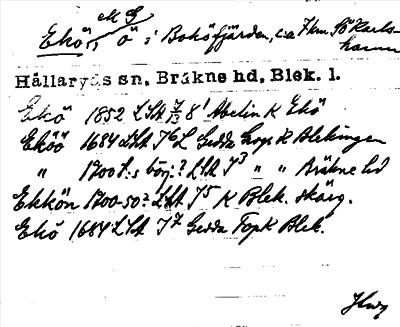 MG
Ekö, ö i Boköfjärden, ca 7 km SÖ Karls-
hamn
Hållaryds sn, Bräkne hd, Blek. l.
Ekö 1852 LSA 8¹ Abelin K Ekö
Eköö 1684 LSA J⁶ L Gedda K Blekingen
" 1700 t:s börj:? LSA J³ " " Bräkne hd
Ekkön 1700-50? LSA J⁵ K Blek. skärg.
Ekö 1684 LSA J⁷ Gedda TopK Blek.